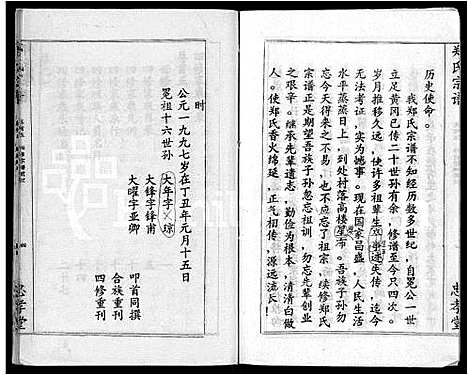 郑氏宗谱
忠孝堂
历史使命。
我郑氏宗谱不知经历数多世纪，自冕公一世
立足黄冈已传二十世孙有余，修谱至今只四次。
岁月推移久远，使许多祖辈生卒事迹失传，迄今
无法考证，实为憾事。现在国家昌盛，人民生活
水平蒸蒸日上，到处村落高楼星布。吾族子孙勿
忘今天得来之不易，也不应忘了祖宗。续修郑氏
宗谱正是期望吾族子孙勿忽祖训，勿忘先辈创业
之艰辛。继承先辈遗志，勤俭为根本，清清白做
人。使郑氏香火绵延，正气相传，源远流长！
时
公元一九九七岁在丁丑年元月十五日
冕祖十六世孙
大年字 琼
大锋字锋甫
大曜字亚卿
叩首同撰
合族重刊
四修重刊
忠孝堂